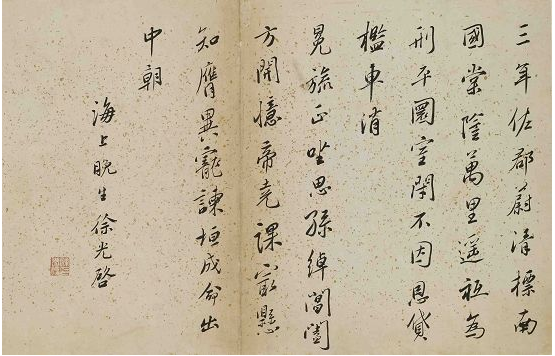 三年佐郡蔚清標南
國棠陰萬里遥祗為
刑平圜室閑不因恩貸
檻車消
冕旒正坐思孫綽閶闔
方開憶帝堯課冣懸
知膺異寵諫垣成命出
中朝
海上晚生徐光啓